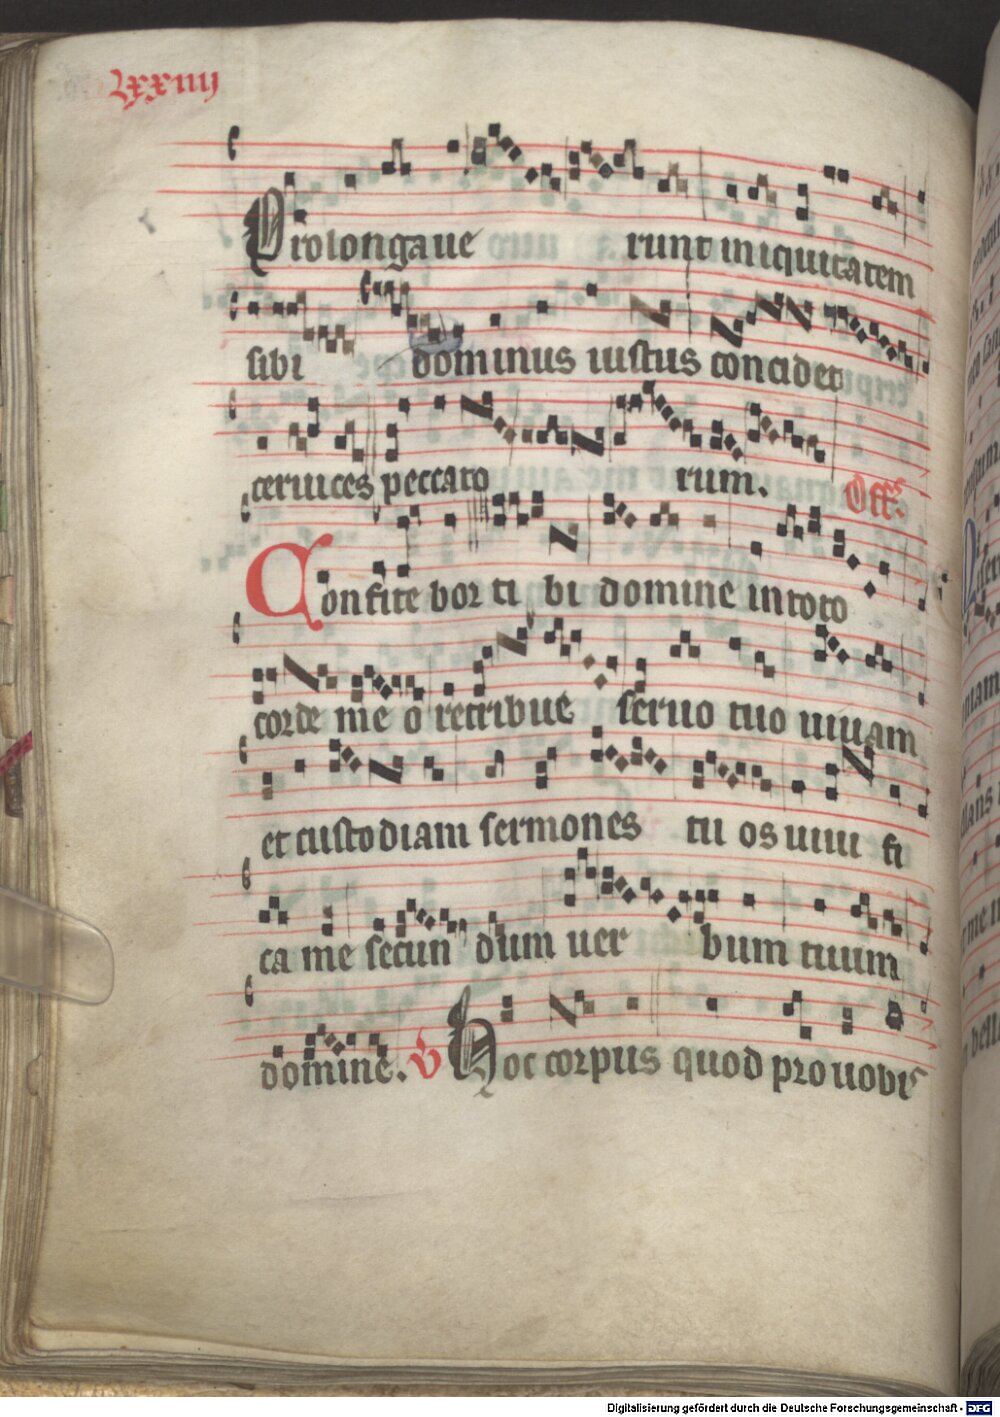 lxxiiij
Prolongaue runt iniquitatem
sibi dominus iustus concidet
ceruices peccato rum. Off.
Confite bor ti bi domine in toto
corde me o retribue seruo tuo uiuam
et custodiam sermones tu os uiui fi
ca me secun dum uer bum tuum
domine. V Hoc corpus quod pro uobis
Digitalisierung gefördert durch die Deutsche Forschungsgemeinschaft - DFG